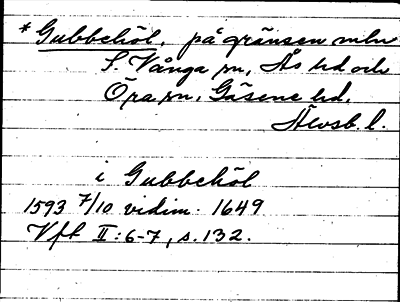 * Gubbehöl, på gränsen mln
S. Vånga sn, Ås hd och
Öra sn, Gäsene hd,
Älvsb. l.
i Gubbehöl
1593 7/10 vidim. 1649
Vft II:6-7, s. 132.